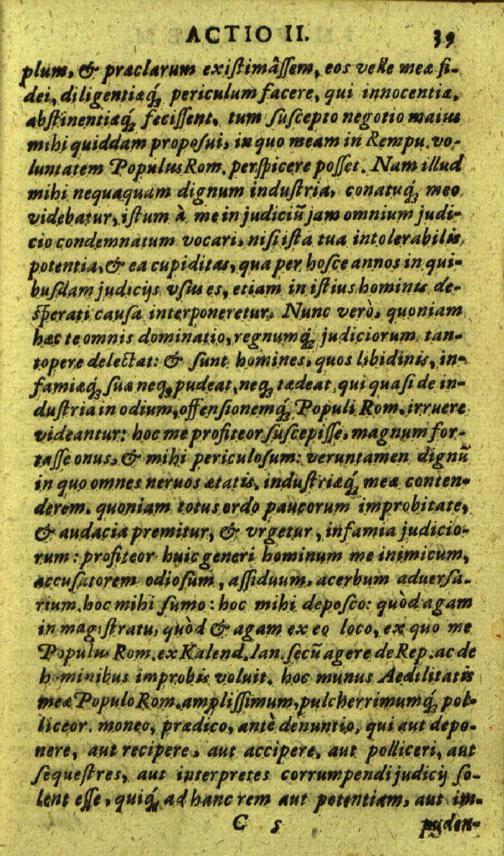 ACTIO II. 39
plum, & præclarum existimâssem, eos velle meæ fi-
dei, diligentiæq́; periculum facere, qui innocentiæ,
abstinentiæq́; fecissent, tum suscepto negotio maius
mihi quiddam proposui, in quo meam in Rempu. vo-
luntatem Populus Rom. perspicere posset. Nam illud
mihi nequaquam dignum industria, conatuq́; meo
videbatur, istum à me in judiciũ jam omnium judi-
cio condemnatum vocari, nisi ista tua intolerabilis
potentia, & ea cupiditas, qua per hosce annos in qui-
busdam judicijs usus es, etiam in istius hominis de-
sperati causa interponeretur. Nunc verò, quoniam
hæc te omnis dominatio, regnumq́; judiciorum tan-
topere delectat: & sunt homines, quos libidinis, in-
famiæq́; suæ neq; pudeat, neq; tædeat, qui quasi de in-
dustria in odium, offensionemq́; Populi Rom. irruere
videantur: hoc me profiteor suscepisse, magnum for-
tasse onus, & mihi periculosum: veruntamen dignũ
in quo omnes nervos ætatis, industriæq́; meæ conten-
derem. quoniam totus ordo paucorum improbitate,
& audacia premitur, & vrgetur, infamia judicio-
rum: profiteor huic generi hominum me inimicum,
accusatorem odiosum, assiduum, acerbum adversa-
rium. hoc mihi sumo: hoc mihi deposco: quòd agam
in magistratu, quòd & agam ex eo loco, ex quo me
Populus Rom. ex Kalend. Ian. secũ agere de Rep. ac de
hominibus improbis voluit. hoc munus Aedilitatis
meæ Populo Rom. amplissimum, pulcherrimumq́; pol-
liceor. moneo, prædico, antè denuntio, qui aut depo-
nere, aut recipere, aut accipere, aut polliceri, aut
sequestres, aut interpretes corrumpendi judicij so-
lent esse, quiq́; ad hanc rem aut potentiam, aut im-
C 5 puden-